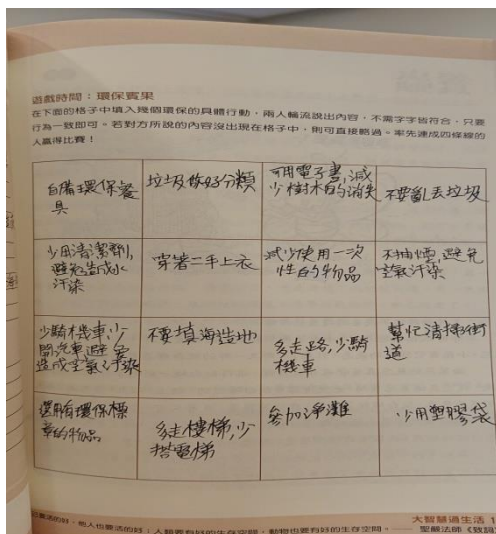 遊戲時間：環保賓果
在下面的格子中填入幾個環保的具體行動，兩人輪流說出內容，不需字字皆符合，只要
行為一致即可。若對方所說的內容沒出現在格子中，則可直接略過。率先連成四條線的
人贏得比賽！
自備環保餐
具
垃圾做好分類
可用電子書,減
少樹木的消失
不要亂丟垃圾
少用清潔劑,
避免造成水
汙染
穿著二手上衣
減少使用一次
性的物品
不抽煙,避免
空氣汙染
少騎機車,少
開汽車避免
造成空氣汙染
不要填海造地
多走路,少騎
機車
幫忙清掃街
道
選用有環保標
章的物品
多走樓梯,少
搭電梯
參加淨灘
少用塑膠袋
要活的好，他人也要活的好；人類要有好的生存空間，動物也要有好的生存空間。
大智慧過生活 1
聖嚴法師《致詞